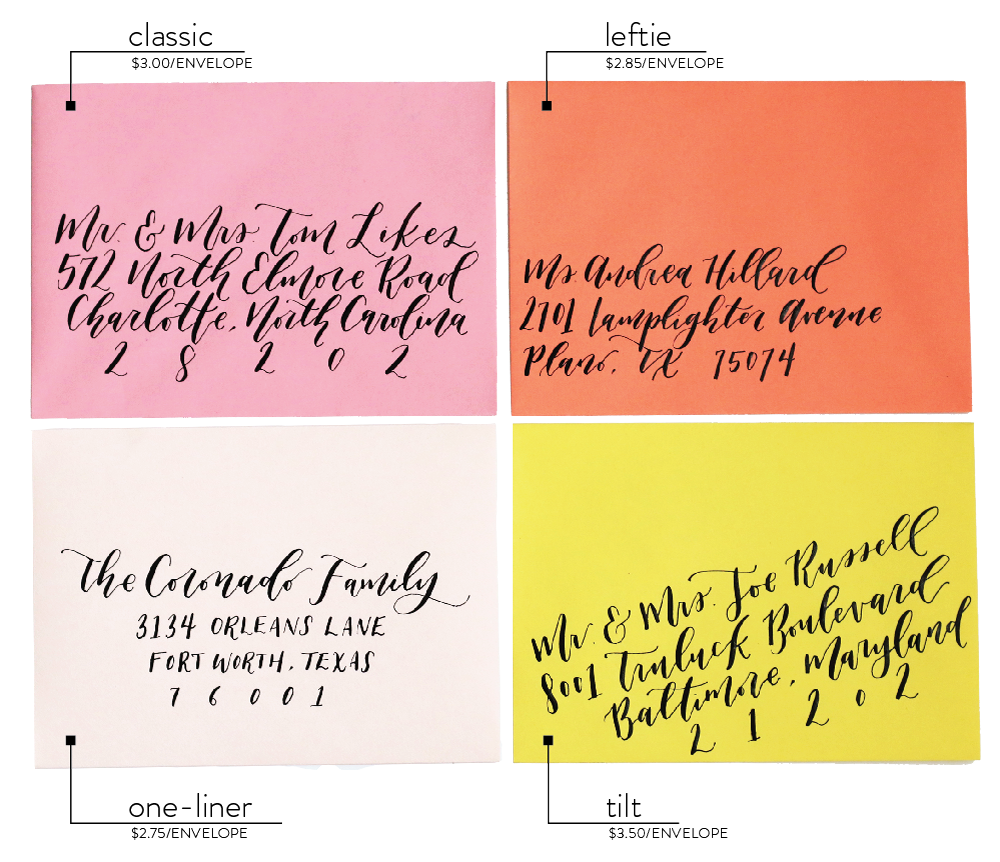 classic
$3.00/ENVELOPE
Mr. & Mrs. Tom Likes
572 North Elmore Road
Charlotte, North Carolina
2 8 2 0 2
leftie
$2.85/ENVELOPE
Ms. Andrea Hillard
2701 Lamplighter Avenue
Plano, TX 75074
The Coronado Family
3134 ORLEANS LANE
FORT WORTH, TEXAS
7 6 0 0 1
one-liner
$2.75/ENVELOPE
Mr. & Mrs. Joe Russell
8001 Truluck Boulevard
Baltimore, Maryland
2 1 2 0 2
tilt
$3.50/ENVELOPE